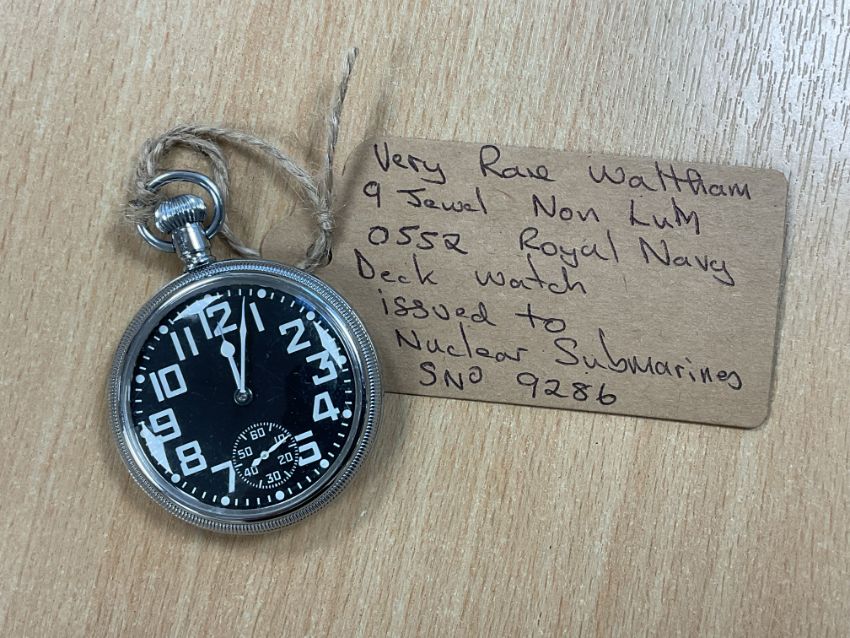 Very Rare Waltham
9 Jewel Non LuM
0552 Royal Navy
Deck Watch
issued to
Nuclear Submarines
SNO 9286
12
1
2
3
4
5
7
8
9
10
11
60
10
20
30
40
50